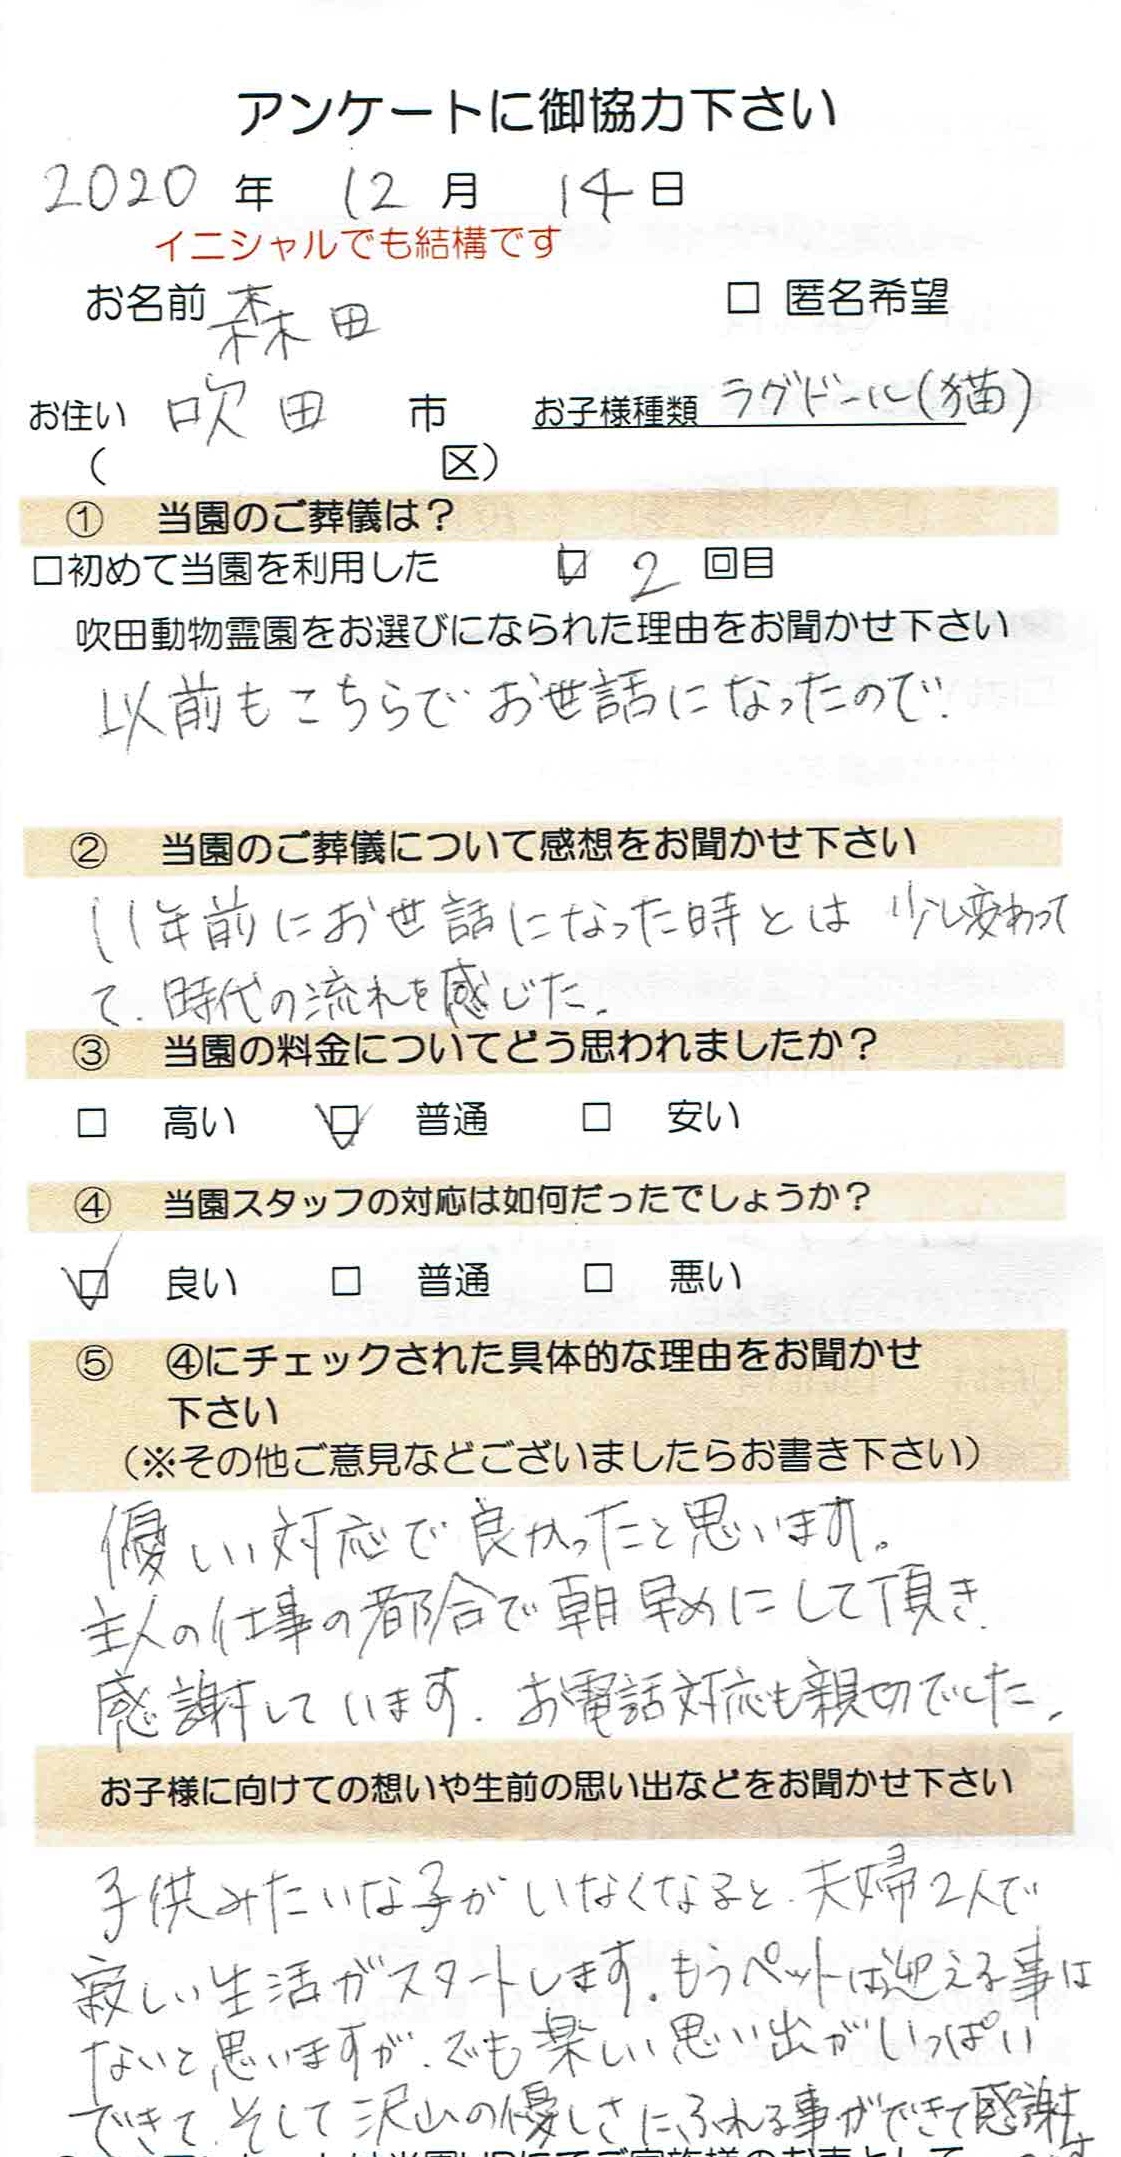 アンケートに御協力下さい
2020 年 12 月 14 日
イニシャルでも結構です
お名前 森田 □ 匿名希望
お住い 吹田 市 お子様種類 ラグドール(猫)
( 区)
① 当園のご葬儀は？
□初めて当園を利用した ☑ 2 回目
吹田動物霊園をお選びになられた理由をお聞かせ下さい
以前もこちらでお世話になったので.
② 当園のご葬儀について感想をお聞かせ下さい
11年前にお世話になった時とは 少し変わって
て.時代の流れを感じた.
③ 当園の料金についてどう思われましたか？
□ 高い ☑ 普通 □ 安い
④ 当園スタッフの対応は如何だったでしょうか？
☑ 良い □ 普通 □ 悪い
⑤ ④にチェックされた具体的な理由をお聞かせ
下さい
（※その他ご意見などございましたらお書き下さい）
優しい対応で良かったと思います。
主人の仕事の都合で朝早めにして頂き.
感謝しています. お電話対応も親切でした.
お子様に向けての想いや生前の思い出などをお聞かせ下さい
子供みたいな子がいなくなると.夫婦2人で
寂しい生活がスタートします。もうペットは迎える事は
ないと思いますが.でも楽しい思い出がいっぱい
できて.そして沢山の優しさにふれる事ができて感謝